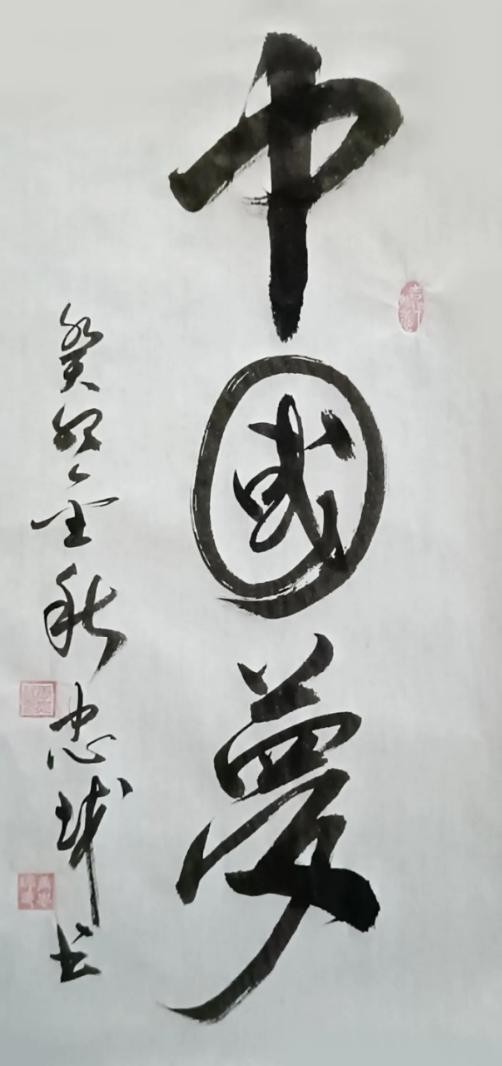 中國夢
癸卯金秋忠城书